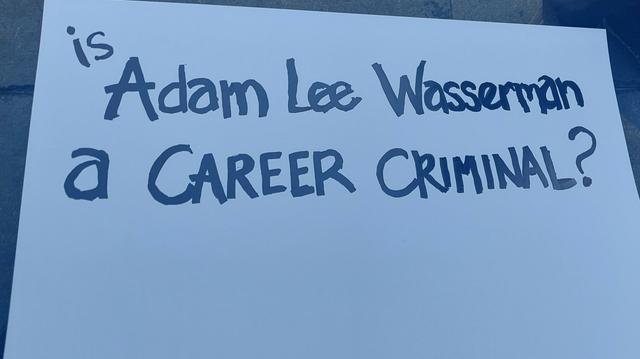 is
Adam Lee Wasserman
a CAREER CRIMINAL?